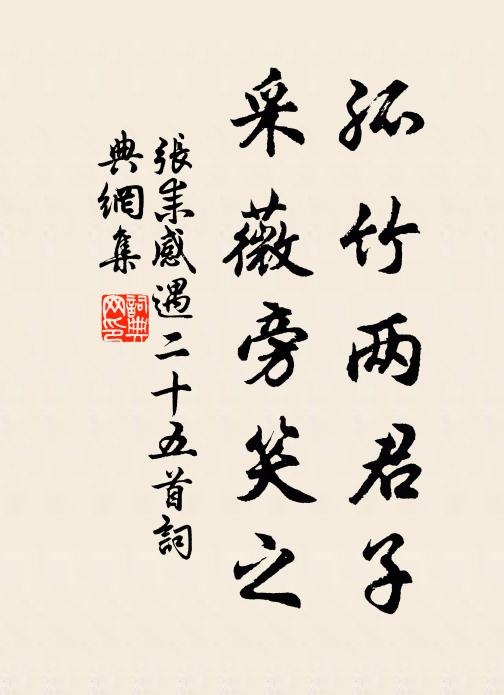 孤竹两君子
采薇旁笑之
張耒感遇二十五首詞
典網集
詞典網印